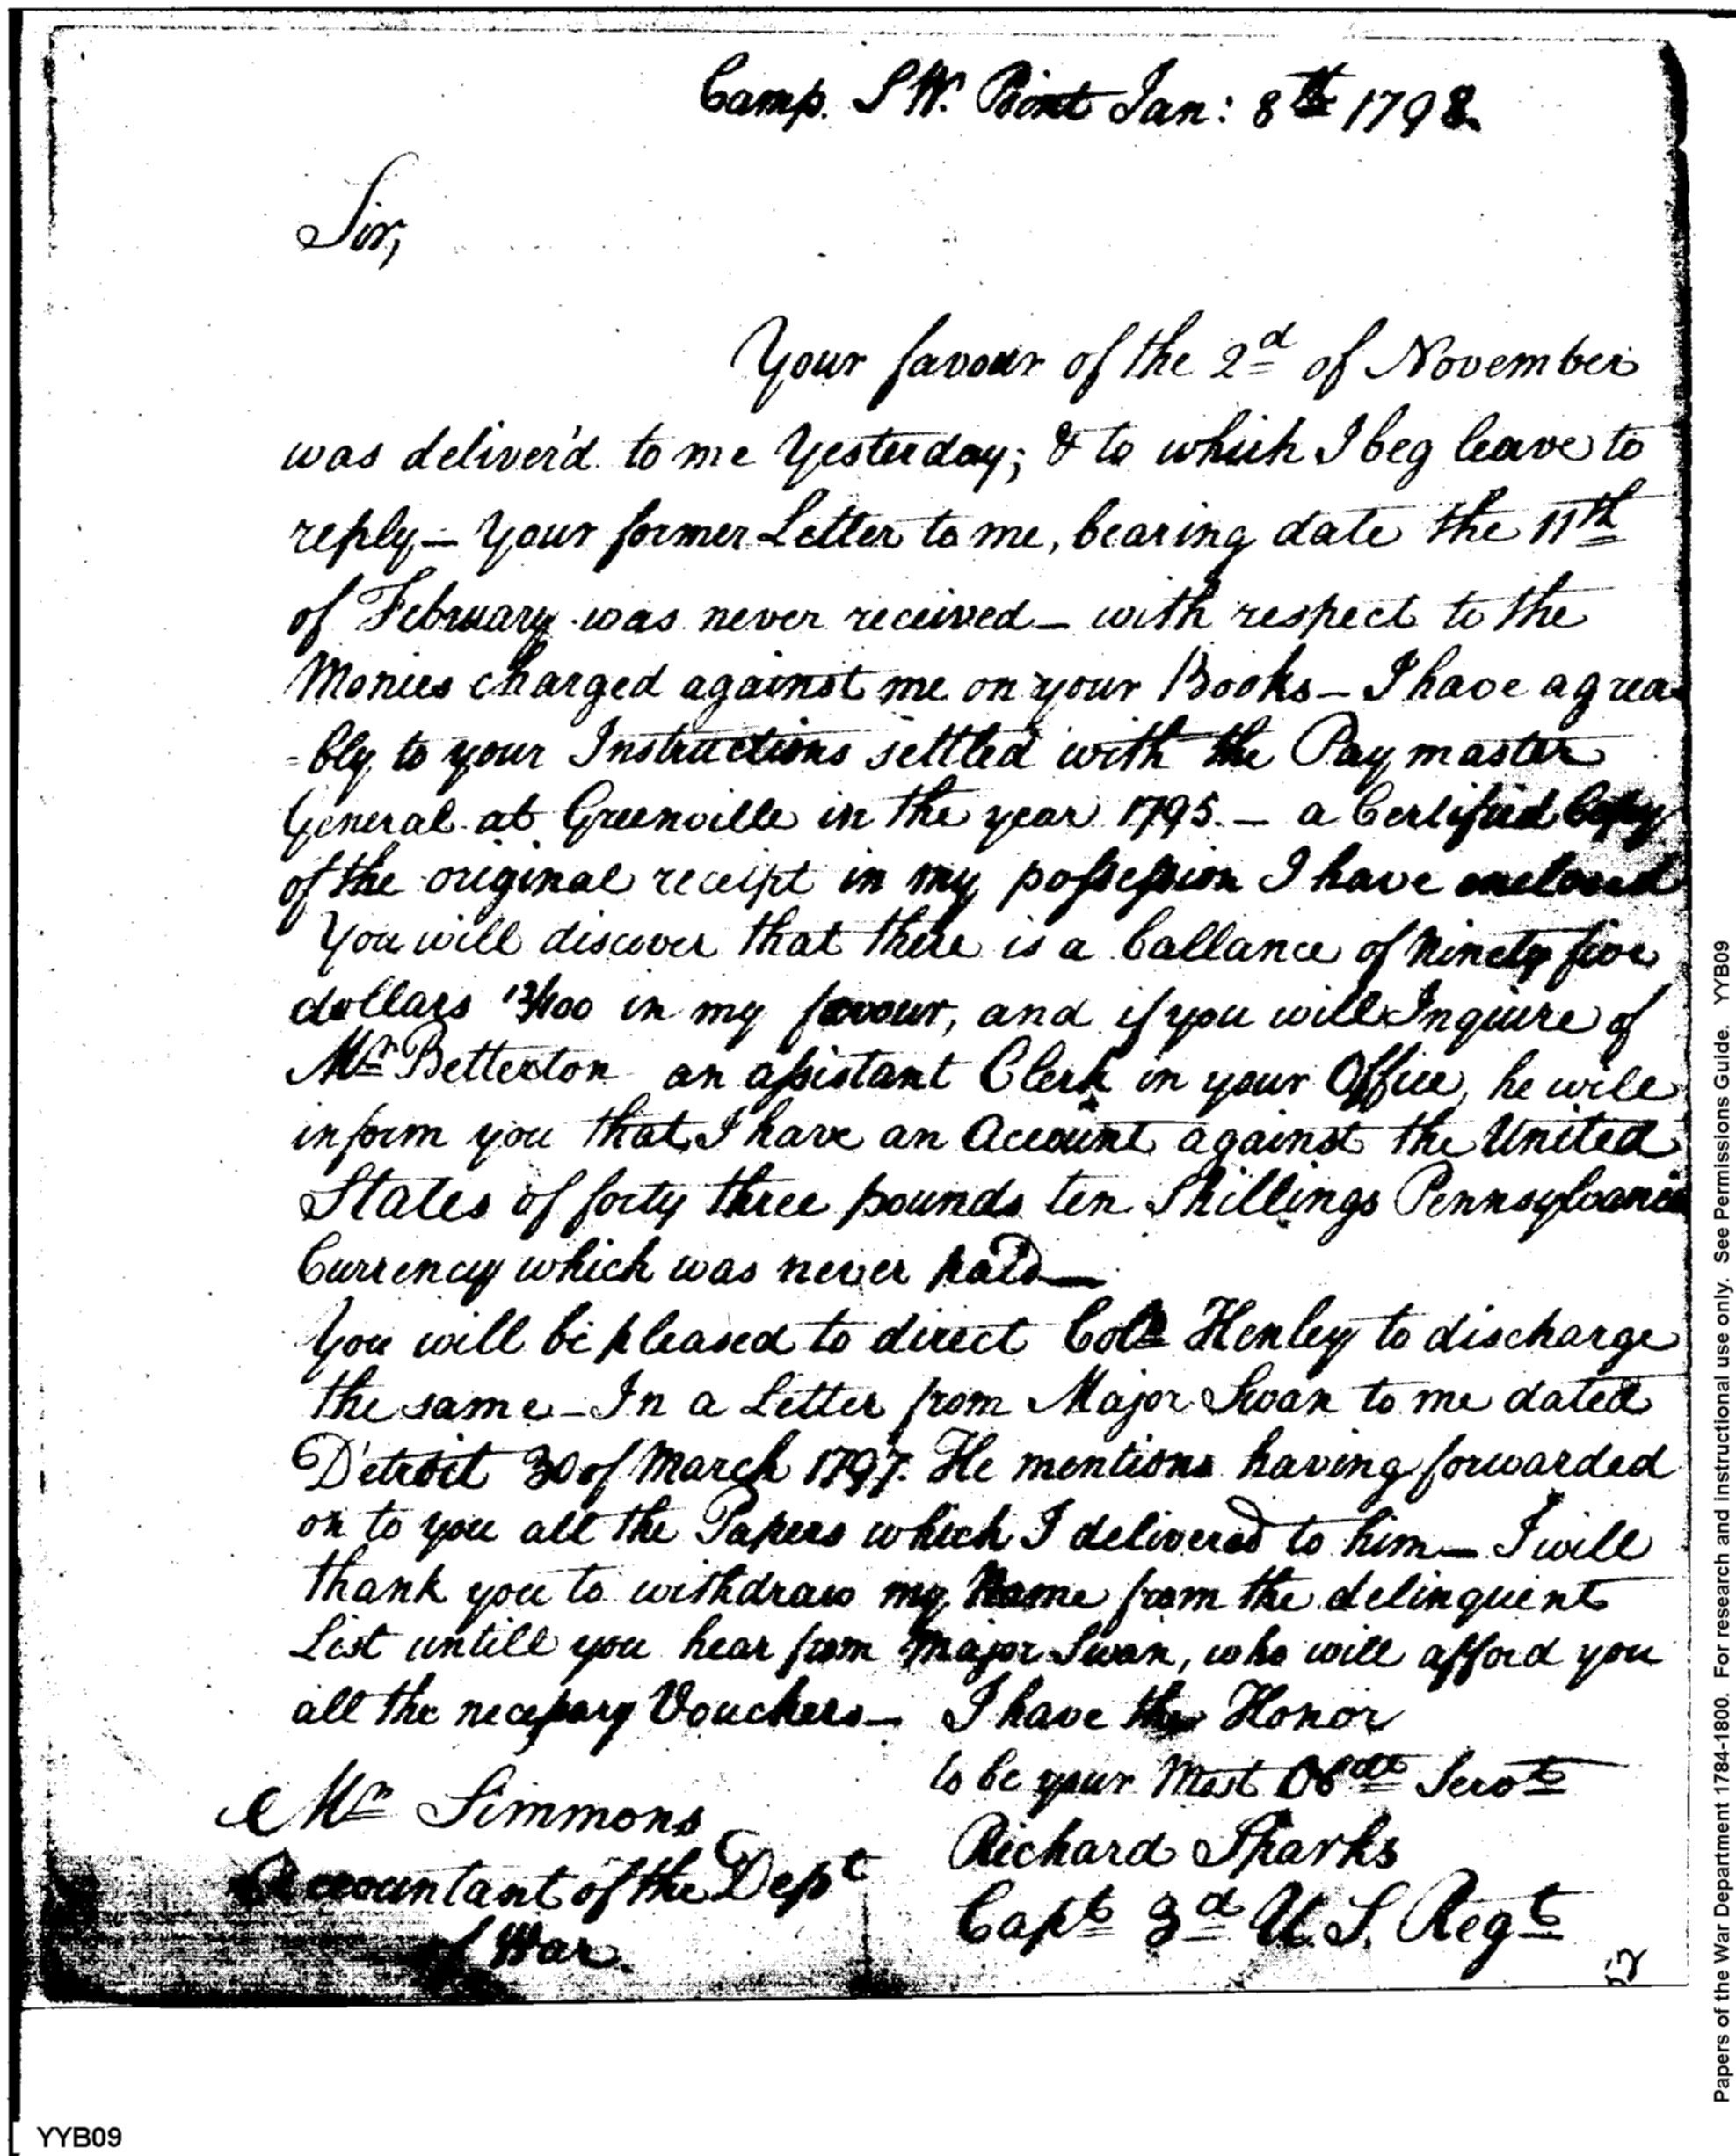 Camp. S W. Point Jan: 8th 1798
Sir,
Your favour of the 2d of November
was deliver'd to me Yesterday; & to which I beg leave to
reply – Your former Letter to me, bearing date the 11th
of February was never received – with respect to the
Monies charged against me on your Books – I have agrea
-bly to your Instructions settled with the Paymaster
General at Greenville in the year 1795. – a Certified Copy
of the original receipt in my possession I have enclosed
You will discover that there is a ballance of Ninety five
dollars 13/100 in my favour, and if you will Inquire of
Mr Betterton an assistant Clerk in your Office, he will
inform you that I have an Account against the United
States of forty three pounds ten Shillings Pennsylvania
Currency which was never paid –
You will be pleased to direct Colo Henley to discharge
the same – In a Letter from Major Swan to me dated
Detroit 30 of March 1797. He mentions having forwarded
on to you all the Papers which I delivered to him – I will
thank you to withdraw my Name from the delinquent
List untill you hear from Major Swan, who will afford you
all the necessary Vouchers – I have the Honor
to be your Most Obdt Servt
Mr Simmons
Richard Sparks
Accountant of the Dept
Capt 3d U. S. Regt
of War.
52
Papers of the War Department 1784-1800. For research and instructional use only. See Permissions Guide. YYB09
YYB09